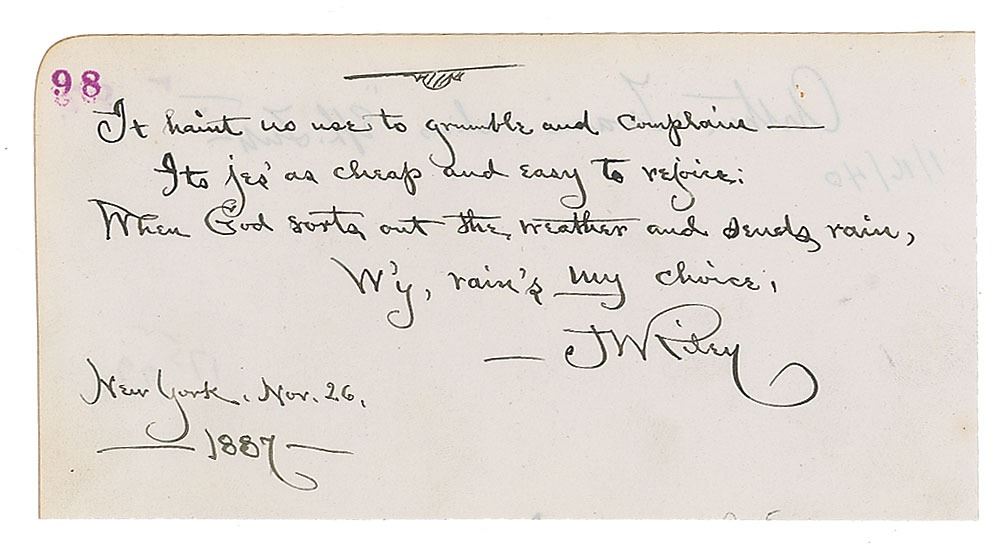 98
It haint no use to grumble and complain —
Its jes' as cheap and easy to rejoice:
When God sorts out the weather and sends rain,
W'y, rain's my choice.
— JW Riley
New York, Nov. 26,
— 1887 —